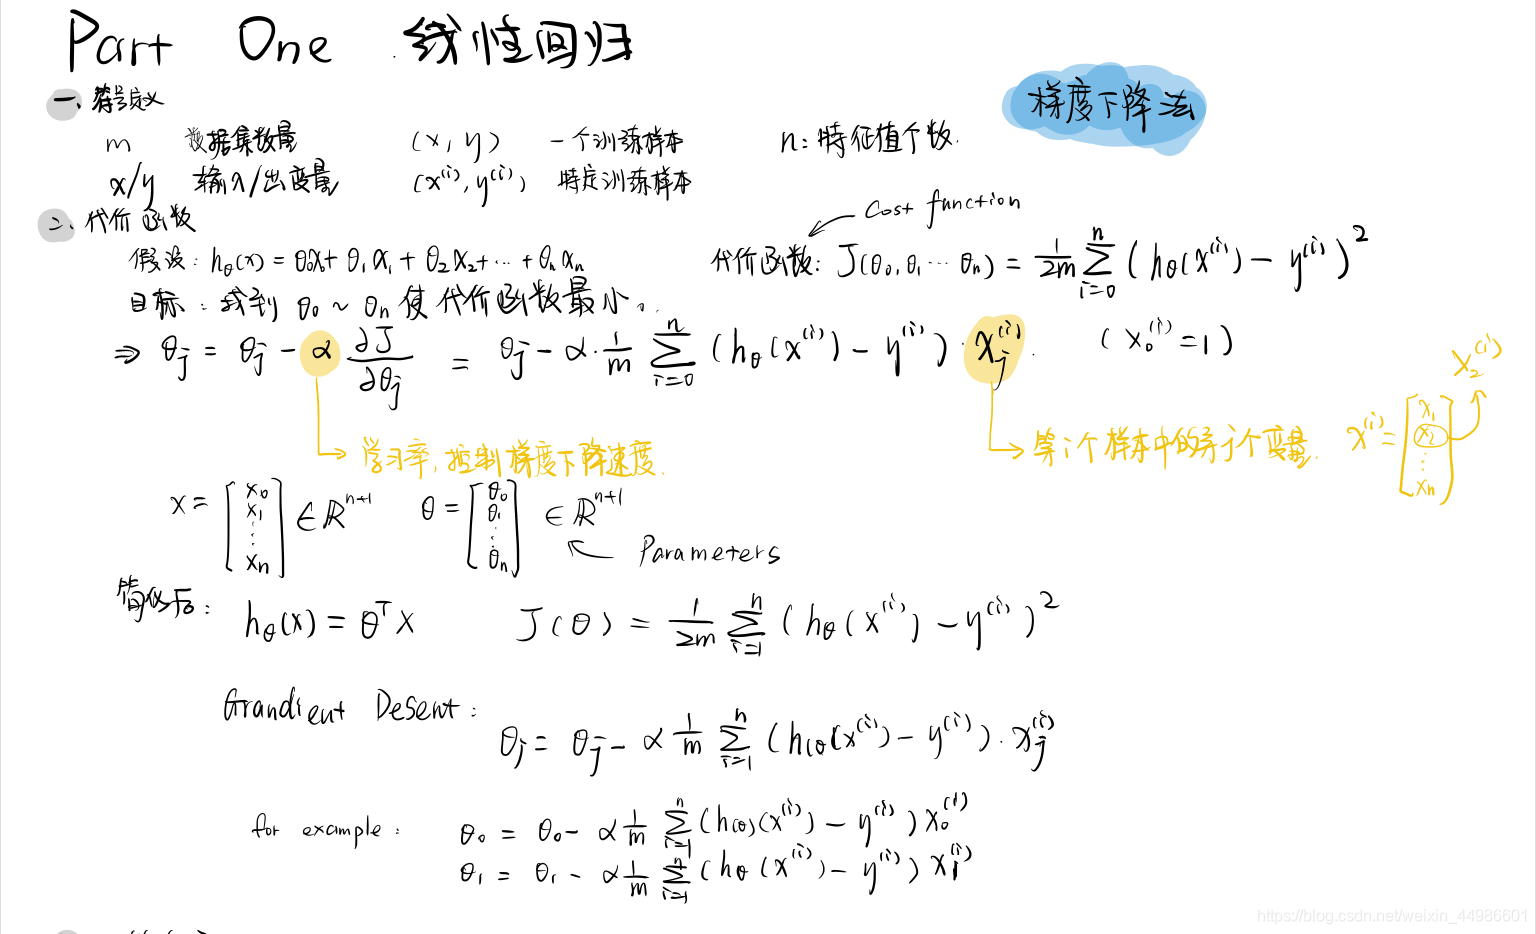 Part One 线性回归
梯度下降法
一、符号定义
m 数据集数量 (x, y) 一个训练样本 n: 特征值个数.
x/y 输入/出变量 (x⁽ⁱ⁾, y⁽ⁱ⁾) 特定训练样本
二、代价函数
cost function
假设: hθ(x) = θ₀x₀ + θ₁x₁ + θ₂x₂ + ... + θₙxₙ 代价函数: J(θ₀, θ₁ ... θₙ) = 1/2m ∑ⁿᵢ₌₀ (hθ(x⁽ⁱ⁾) − y⁽ⁱ⁾)²
目标: 找到 θ₀ ~ θₙ 使代价函数最小。
⇒ θj = θj − α ∂J/∂θj = θj − α · 1/m ∑ⁿᵢ₌₀ (hθ(x⁽ⁱ⁾) − y⁽ⁱ⁾) · xj⁽ⁱ⁾. (x₀⁽ⁱ⁾ = 1)
x₂⁽ⁱ⁾
学习率, 控制梯度下降速度.
第i个样本中的第j个变量. x⁽ⁱ⁾ = [x₁ x₂ ⋮ xₙ]
x = [x₀ x₁ ⋮ xₙ] ∈ ℝⁿ⁺¹ θ = [θ₀ θ₁ ⋮ θₙ] ∈ ℝⁿ⁺¹
Parameters
简化后: hθ(x) = θᵀx J(θ) = 1/2m ∑ⁿᵢ₌₁ (hθ(x⁽ⁱ⁾) − y⁽ⁱ⁾)²
Grandient Desent:
θj = θj − α 1/m ∑ⁿᵢ₌₁ (h(θ(x⁽ⁱ⁾) − y⁽ⁱ⁾) · xj⁽ⁱ⁾
for example: θ₀ = θ₀ − α 1/m ∑ⁿᵢ₌₁ (h(θ)(x⁽ⁱ⁾) − y⁽ⁱ⁾) x₀⁽ⁱ⁾
θ₁ = θ₁ − α 1/m ∑ⁿᵢ₌₁ (hθ(x⁽ⁱ⁾) − y⁽ⁱ⁾) x₁⁽ⁱ⁾
https://blog.csdn.net/weixin_44986601